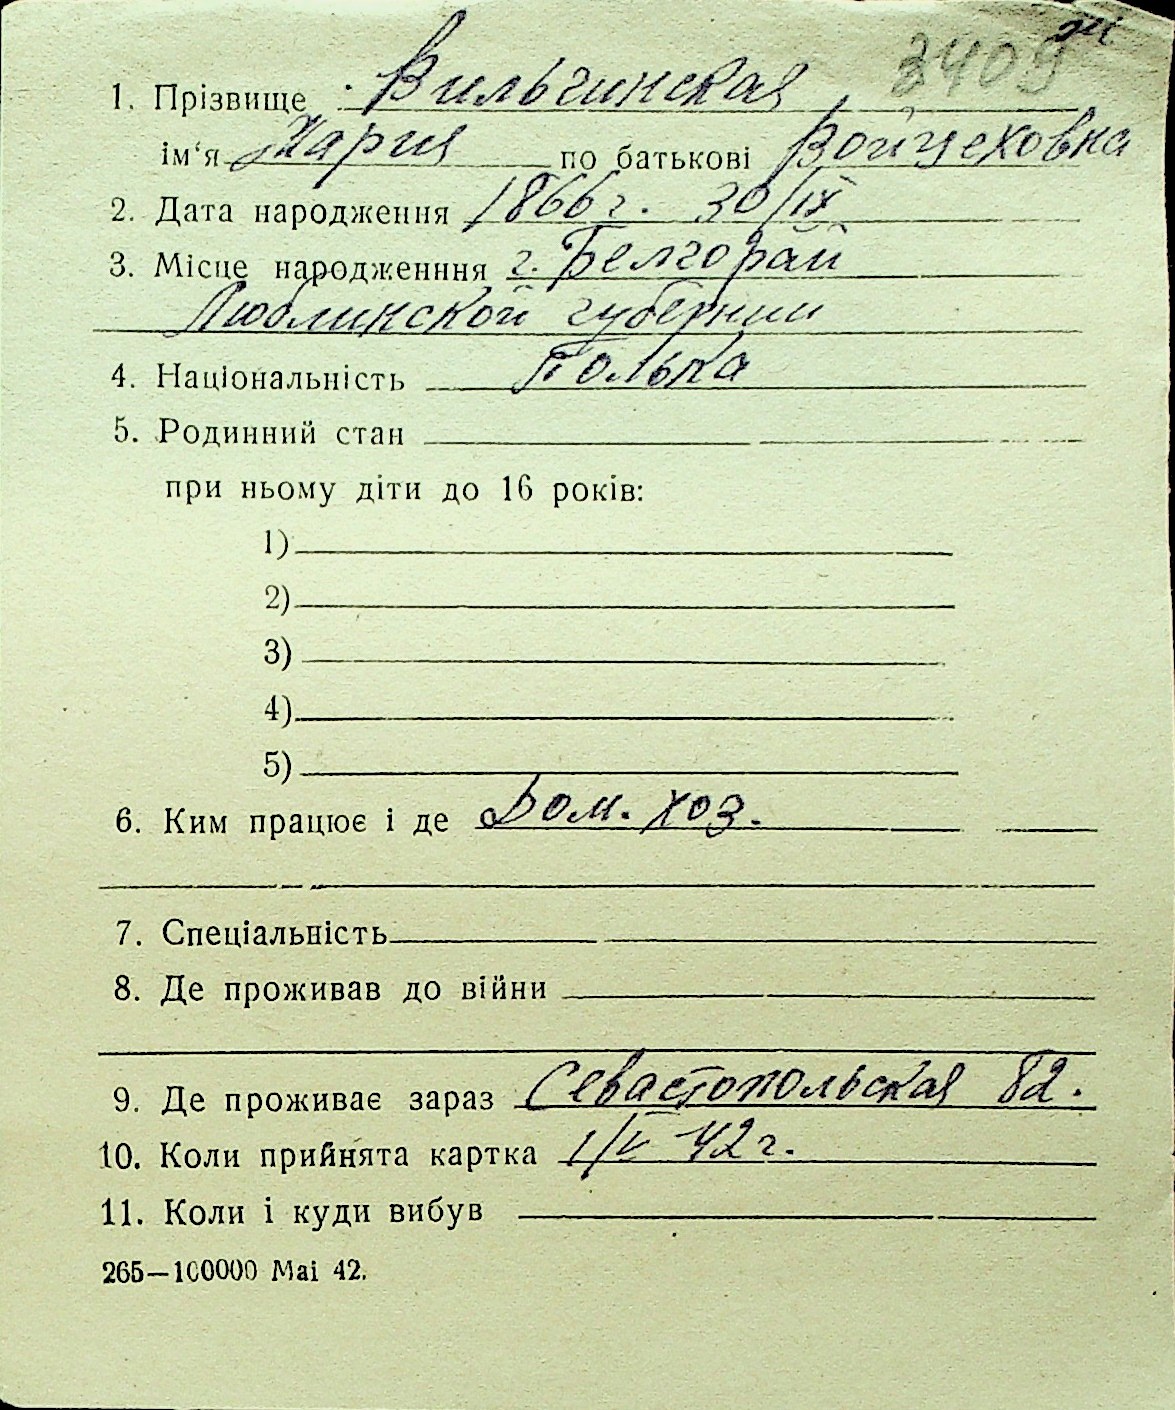 3409
1. Прізвище Вильчинская
ім'я Мария по батькові Войцеховна
2. Дата народження 1866 г. 30/IX
3. Місце народженння г. Белгорай
Люблинской губернии
4. Національність Полька
5. Родинний стан
при ньому діти до 16 років:
1)
2)
3)
4)
5)
6. Ким працює і де Дом. хоз.
7. Спеціальність
8. Де проживав до війни
9. Де проживає зараз Севастопольская 82.
10. Коли прийнята картка 1/V 42 г.
11. Коли і куди вибув
265—100000 Mai 42.